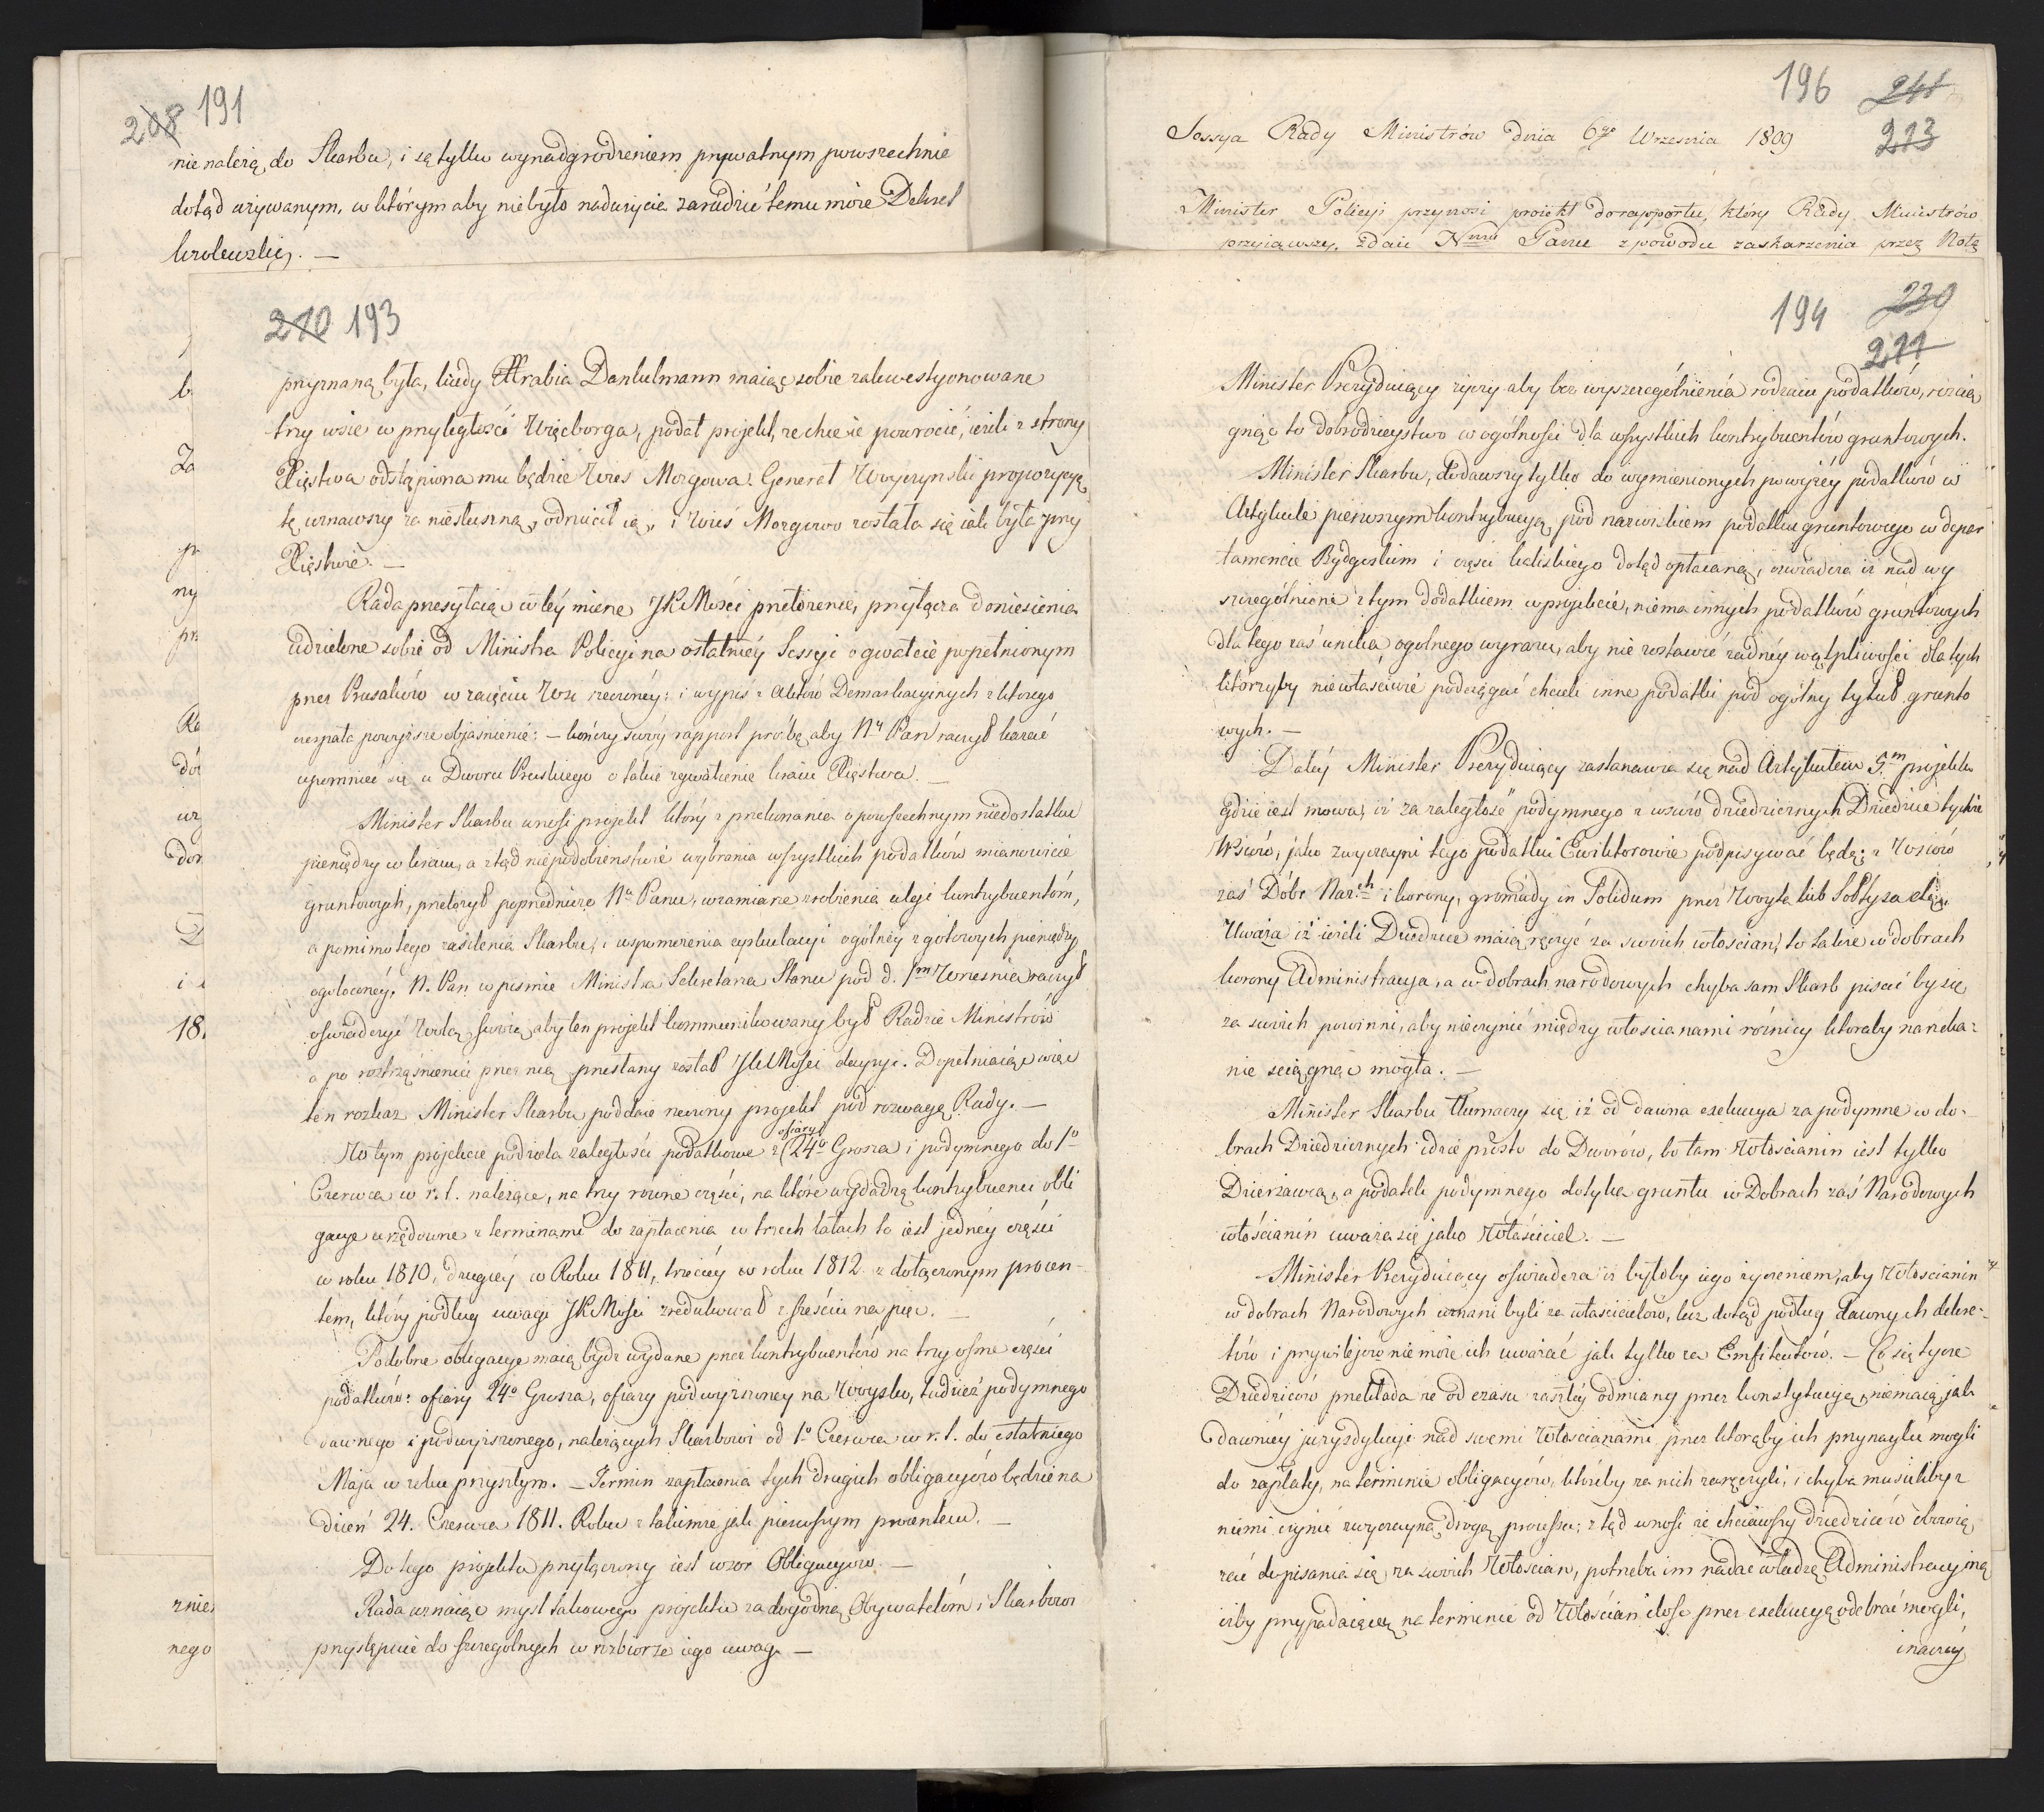 208 191
nie należą do Skarbu, i są tylko wynadgrodzeniem prywatnym powszechnie
dotąd używanym, w którym aby niebyło nadużycia zaradzić temu może Dekret
krolewski. —
196 241
213
Sessya Rady Ministrów dnia 6go Września 1809
Minister Policyi przynosi proiekt do rapportu, który Rady Ministrów
przyiąwszy, zdaie Nmu Panu z powodu zaskarzenia przez Notę
b
Za
p
ny
pr
Ra
dór
urz
don
D
i
18.
znies
nego
210 193
przyznaną była, kiedy Hrabia Dankelmann maiąc sobie zakwestyonowane
trzy wsie w przyległości Więcborga, podał projekt, że chce ie powrocić, ieżeli z strony
Xięstwa odstąpiona mu będzie Wies Morgowa. Generał Woyczynski propozycyą
tę uznawszy za niesłuszną, odrzucił ią, i Wieś Morgowo została się iak była przy
Xięstwie. —
Rada przesyłaiąc w tey mierze JKMości przełożenie, przyłącza doniesienia
udzielone sobie od Ministra Policyi na ostatniéy Sessyi o gwałcie popełnionym
przez Prusaków w zaięciu Wsi rzeczonéy: i wypis z Aktów Demarkacyinych z ktorego
czerpała powyższe objaśnienie: — kończy swóy rapport prośbą, aby Ny Pan raczył kazać
upomnieć się u Dworu Pruskiego o takie zgwałcenie kraiu Xięstwa. —
Minister Skarbu wnosi projekt który z przekonania o powszechnym niedostatku
pieniędzy w kraiu, a ztąd niepodobieństwie wybrania wszystkich podatków mianowicie
gruntowych, przełożył poprzedniczo Nu Panu, w zamiarze zrobienia ulgi kontrybuentóm,
a pomimo tego zasilenia Skarbu, i wspomożenia cyrkulacyi ogólnéy z gotowych pieniędzy
ogołoconéy. N. Pan w pismie Ministra Sekretarza Stanu pod d. 1m Września raczył
oświadczyć Wolą swoią, aby ten projekt kommunikowany był Radzie Ministrów
a po roztrząśnieniu przez nią przesłany został JKMości decyzyi. Dopełniaiąc więc
ten rozkaz Minister Skarbu poddaie rzeczony projekt pod rozwagę Rady. —
W tym projekcie podziela zaległości podatkowe z (ofiary 24o Grosza i podymnego do 1o
Czerwca w r. t. należące, na trzy równe części, na które wydadzą kontrybuenci obli
gacye urzędowne z terminami do zapłacenia w trzech latach to iest jednéy części
w roku 1810, drugiéy w Roku 1811, trzeciéy w roku 1812 z dołączonym procen-
tem, który podług uwagi JKMości zredukował z sześciu na pięć. —
Podobne obligacye maią bydz wydane przez kontrybuentów na trzy osme części
podatków: ofiary 24o Grosza, ofiary podwyższoney na Woysko, tudzież podymnego
dawnego i podwyższonego, należących Skarbowi od 1o Czerwca w r. t. do ostatniego
Maja w roku przyszłym. — Termin zapłacenia tych drugich obligacyów będzie na
dzień 24. Czerwca 1811. Roku z takimże jak pierwszym procentem. —
Do tego projektu przyłączony iest wzor Obligacyow. —
Rada uznaiąc myśl takowego projektu za dogodną Obywatelóm i Skarbowi
przystępuie do szczególnych w rozbiorze iego uwag. —
194 230
211
Minister Prezyduiący życzy aby bez wyszczególnienia rodzaiu podatków, rozcią
gnąć to dobrodzieystwo w ogólności dla wszystkich kontrybuentów gruntowych.
Minister Skarbu, dodawszy tylko do wymienionych powyżéy podatków w
Artykule pierwszym kontrybucyą pod nazwiskiem podatku gruntowego w depar
tamencie Bydgoskim i części kaliskiego dotąd opłacaną, oświadcza iż nad wy
szczególnione z tym dodatkiem w projekcie, niema innych podatków gruntowych
dla tego zaś unika ogolnego wyrazu, aby nie zostawić żadnéy wątpliwości dla tych
którzyby niewłaściwie podciągać chcieli inne podatki pod ogólny tytuł grunto
wych. —
Daléy Minister Prezyduiący zastanawia się nad Artykułem 5m projektu
gdzie iest mowa, iż za zaległość podymnego z wsiów dziedzicznych Dziedzice tychże
Wsiów, jako zwyczayni tego podatku Exiktorowie podpisywać będą; z Wsiów
zaś Dóbr Narch i korony, gromady in Solidum przez Woyta lub Sołtysa.
Uważa iż ieżeli Dziedzice maią ręczyć za swoich włoscian, to także w dobrach
korony Administracya, a w dobrach narodowych chyba sam Skarb pisać by się
za swoich powinni, aby nieczynić między włoscianami różnicy ktoraby narzeka:
nie sciągnąć mogła. —
Minister Skarbu tłumaczy się iż od dawna exekucya za podymne w do-
brach Dziedzicznych idzie prosto do Dworów, bo tam Włoscianin iest tylko
Dzierzawcą, a podatek podymnego dotyka gruntu w Dobrach zaś Narodowych
włościanin uważa się jako Właściciel. —
Minister Prezyduiący oświadcza iż byłoby iego życzeniem, aby Włoscianin
w dobrach Narodowych uznani byli za właścicielów, lecz dotąd podług dawnych dekre-
tów i przywilejów nie może ich uważać jak tylko za Emfiteutów. — Co się tycze
Dziedziców przekłada że od czasu zaszłéy odmiany przez konstytucyą, niemaią jak
dawniéy juryzdykcyi nad swemi Włoscianami przez którąby ich przynaglić mogli
do zapłaty, na terminie obligacyów, któreby za nich zaręczyli, i chyba musieliby z
niemi czynić zwyczayną drogą processu; ztąd wnosi że chciawszy dziedziców obowią
zać do pisania się za swoich Włoscian, potrzeba im nadać władzę Administracyjną
iżby przypadaiącą na terminie od Włościan ilość przez exekucyą odebrać mogli,
inaczéy